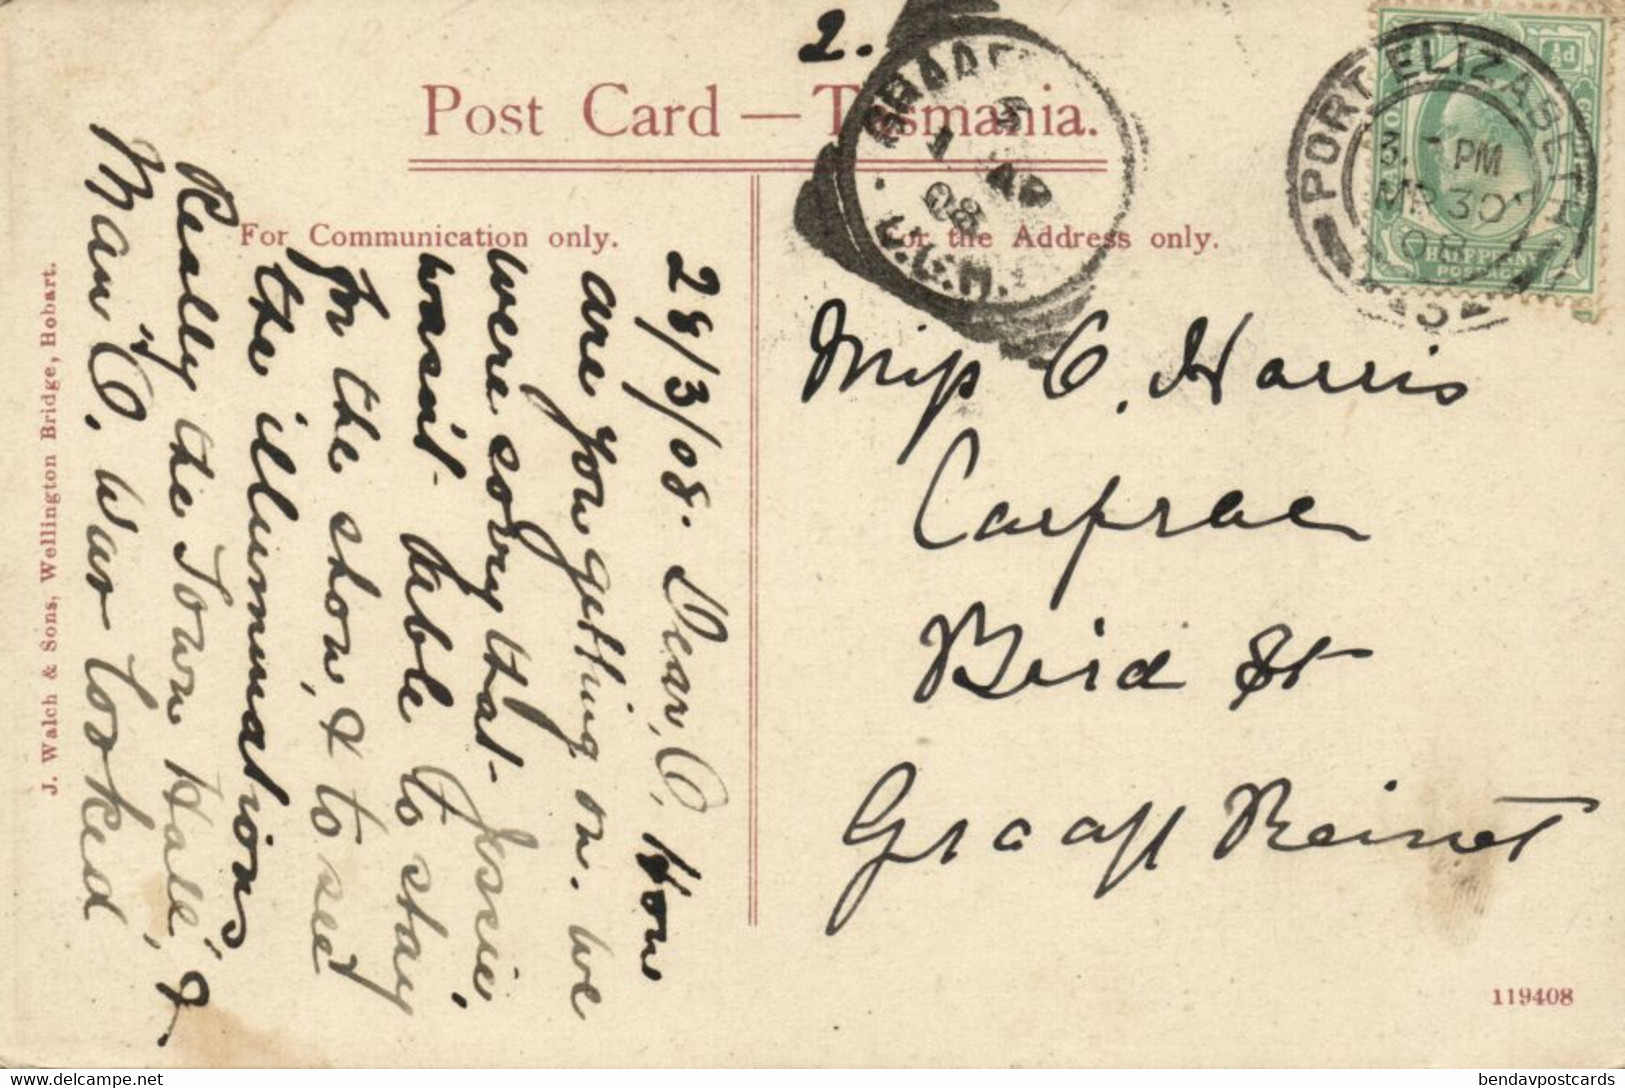 2.
Post Card — Tasmania.
For Communication only.
For the Address only.
28/3/08. Dear, O, How
are you getting on. We
were sorry that Jessie
wasn't able to stay
for the show, & to see
the illumination
Really the Town Hall, &
Main St. War looked
Miss O. Harris
Bird St
Graaff Reinet
PORT ELIZABETH
3. PM
MR 30
08
3
GRAAFF
5
1 AP
08
C.G.H.
HALFPENNY
POSTAGE
J. Walch & Sons, Wellington Bridge, Hobart.
119408
delcampe.net
bendavpostcards